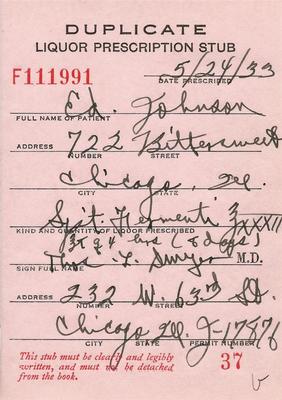 DUPLICATE
LIQUOR PRESCRIPTION STUB
F111991 5/24/33
DATE PRESCRIBED
Ed. Johnson
FULL NAME OF PATIENT
722 Bittersweet
ADDRESS NUMBER STREET
Chicago, Ill.
CITY STATE
Spt. Fermenti ʒ XXXII
KIND AND QUANTITY OF LIQUOR PRESCRIBED
q 4 hrs (8 days)
Thos. L. Dwyer M.D.
SIGN FULL NAME
232 W. 63rd St.
ADDRESS NUMBER STREET
Chicago Ill. J-17476
CITY STATE PERMIT NUMBER
This stub must be clearly and legibly
written, and must not be detached
from the book.
37